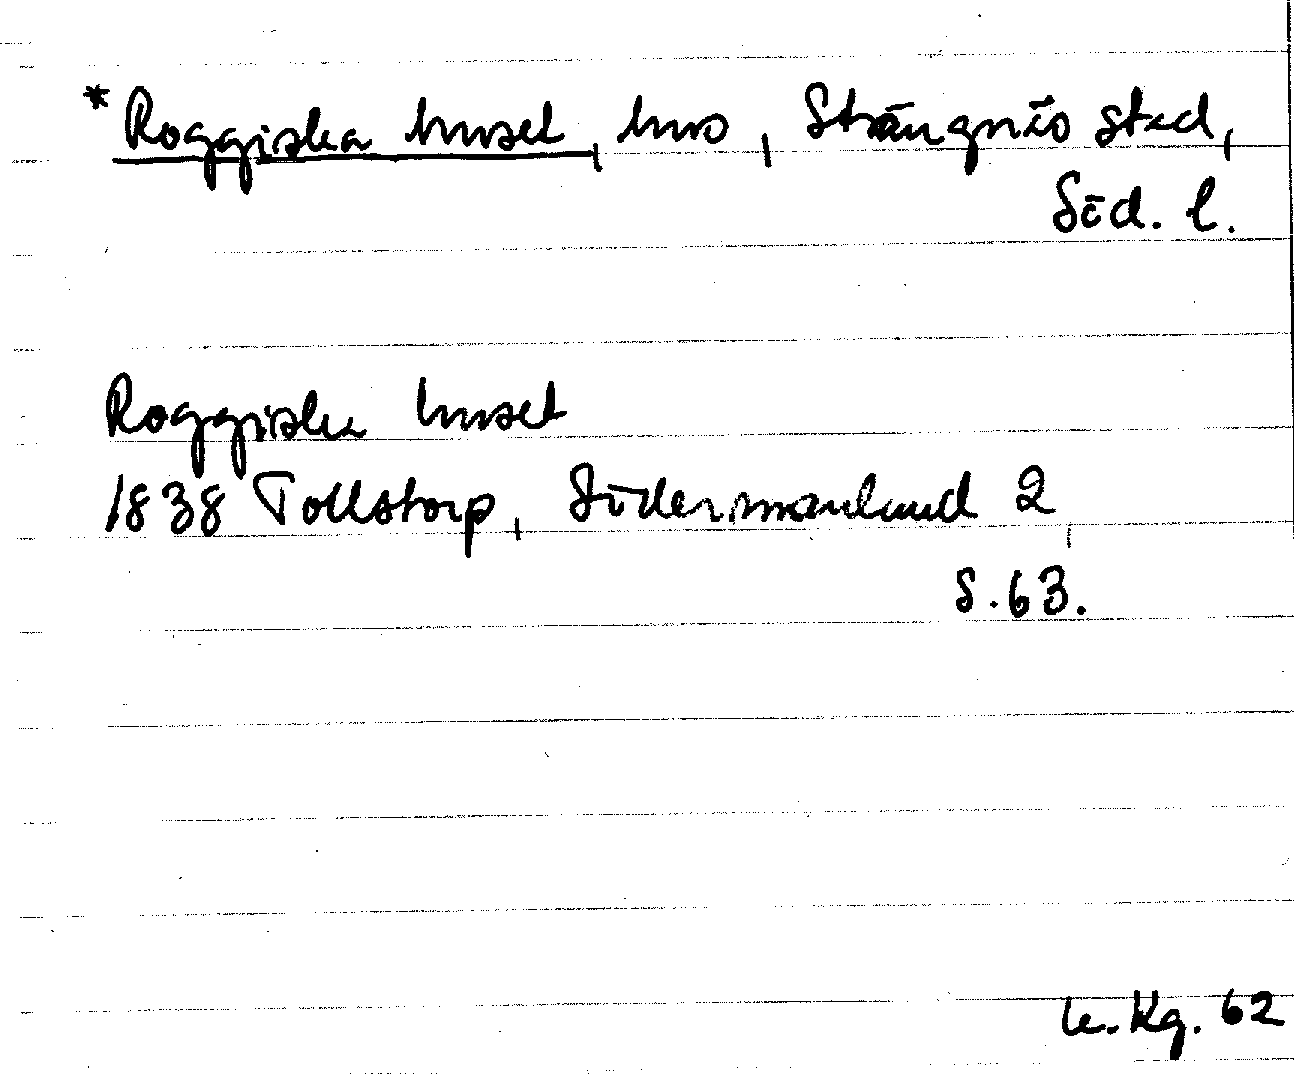 * Roggiska huset, hus, Strängnäs stad,
Söd. l.
Roggiska huset
1838 Tollstorp, Södermanland 2,
S. 63.
Kg. 62